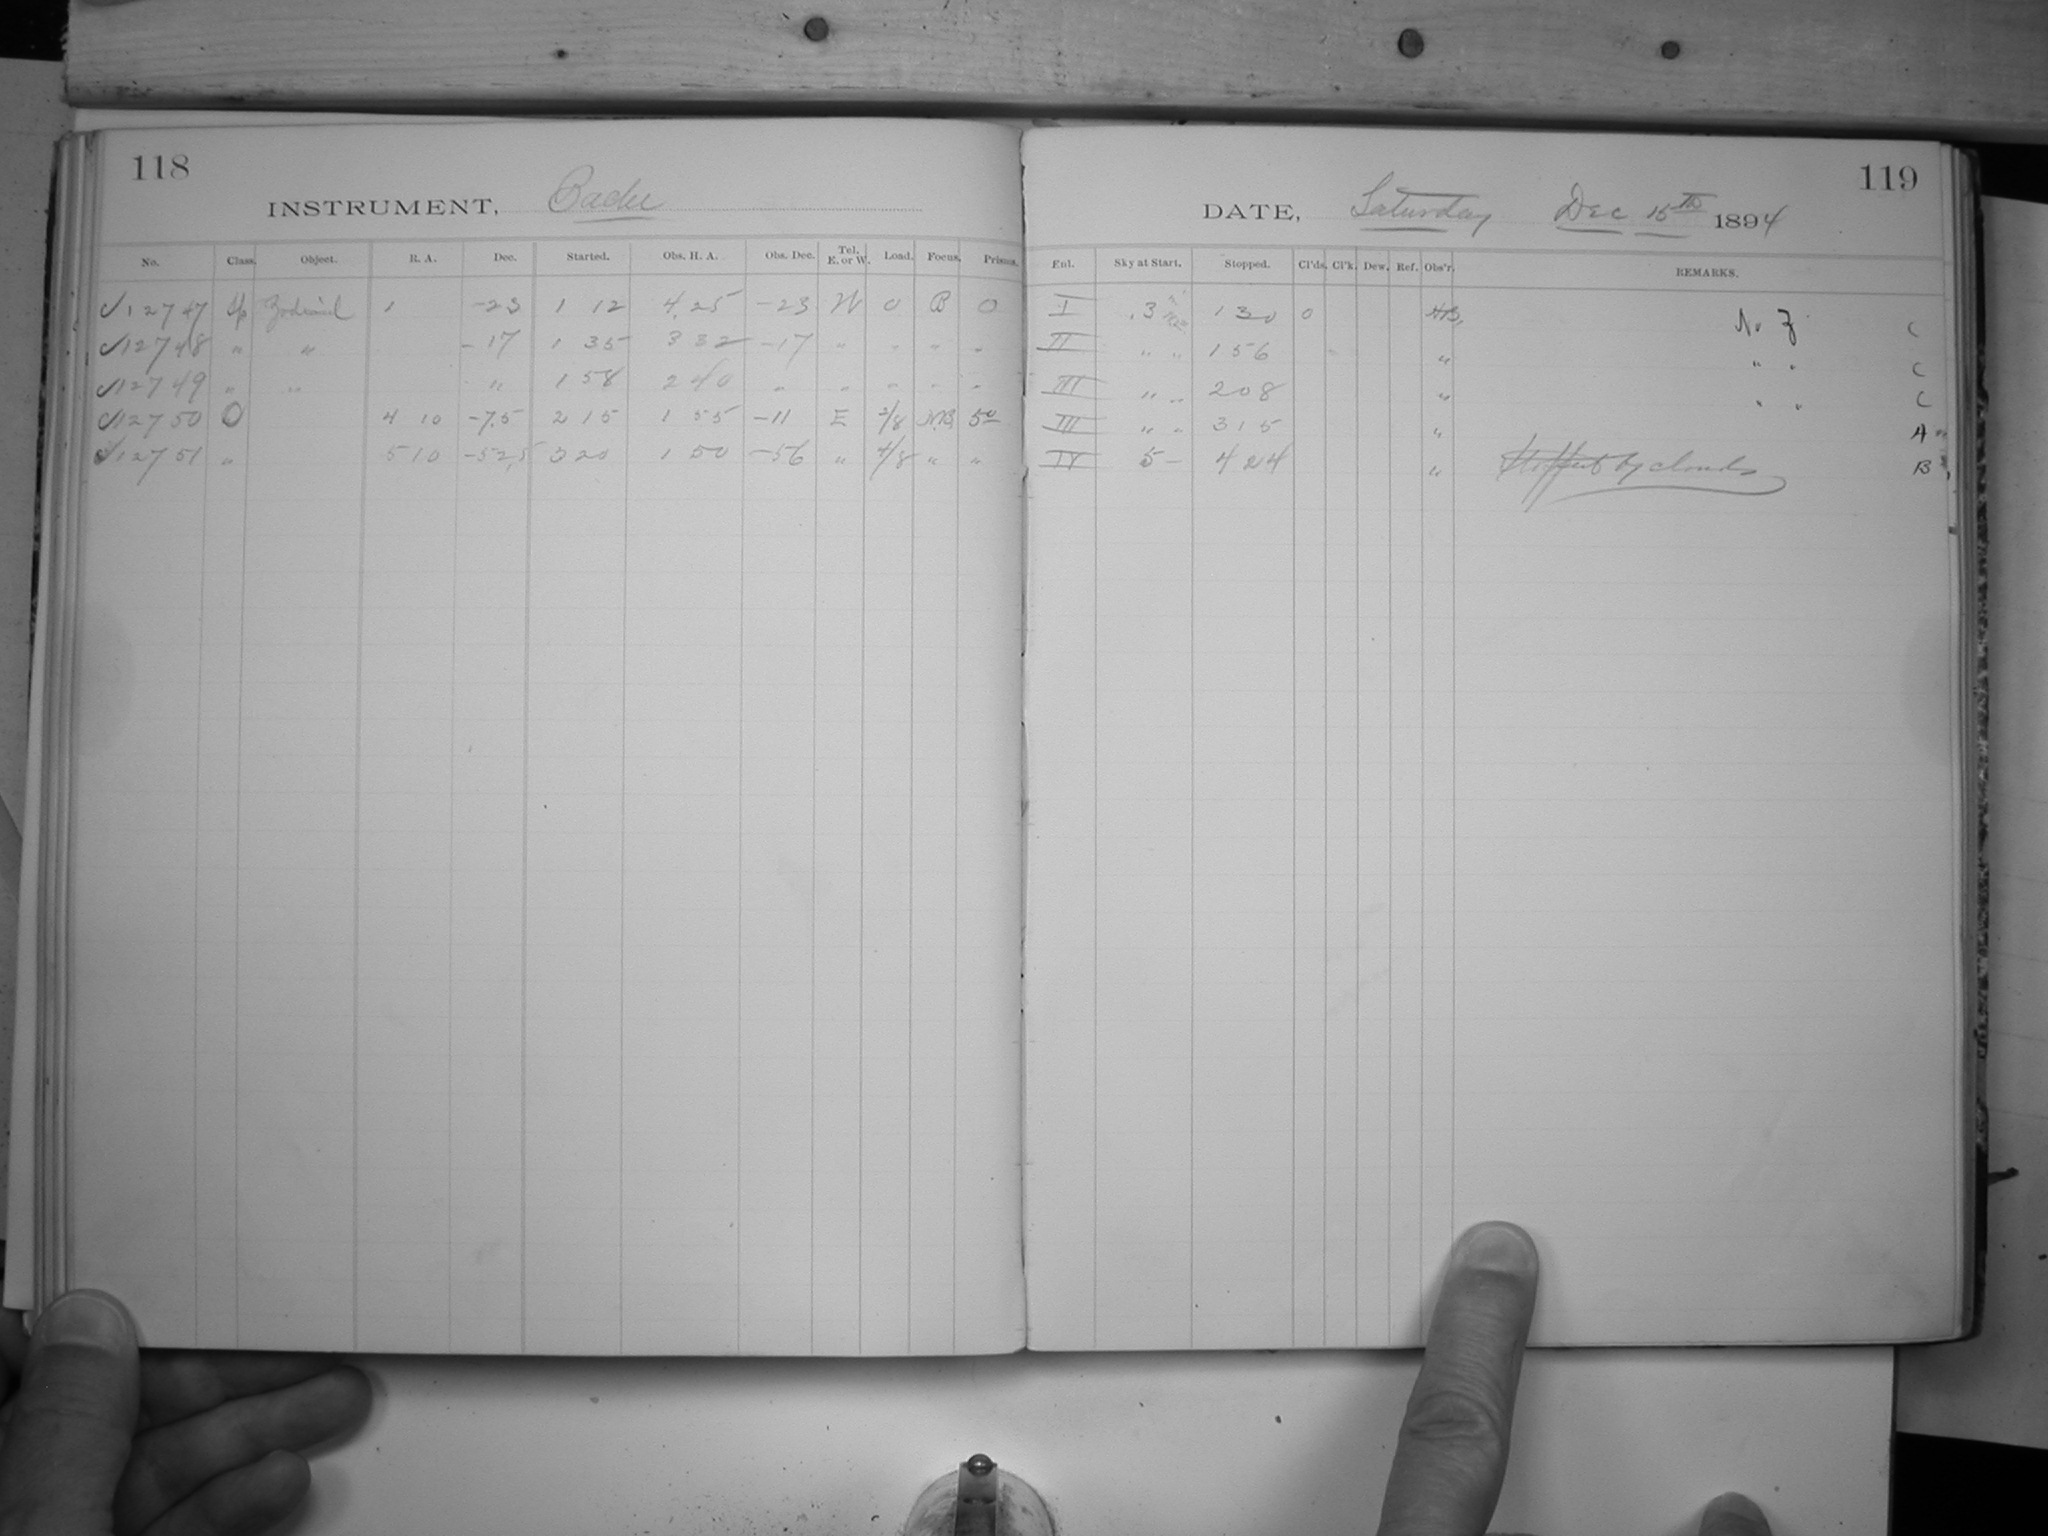 118
INSTRUMENT, Bache
No. Class. Object. R. A. Dec. Started. Obs. H. A. Obs. Dec. Tel. E. or W. Load. Focus. Prisms.
12747 Sp Zodiacal 1 -23 1 12 4.25 -23 W 0 B 0
12748 " " -17 1 35 3 32 -17 " " " "
12749 " " " 1 58 2 40 " " " " "
12750 O 4 10 -7.5 2 15 1 55 -11 E 2/8 N.B. 50
12751 " 5 10 -52.5 3 20 1 50 -56 " 4/8 " "
119
DATE, Saturday Dec 15th 1894
Enl. Sky at Start. Stopped. Cl'ds. Cl'k. Dew. Ref. Obs'r. REMARKS.
I .3 1 30 0 No Z C
II " " 1 56 " " " C
III " " 2 08 " " " C
III " " 3 15 " A
IV 5- 4 24 " by clouds B